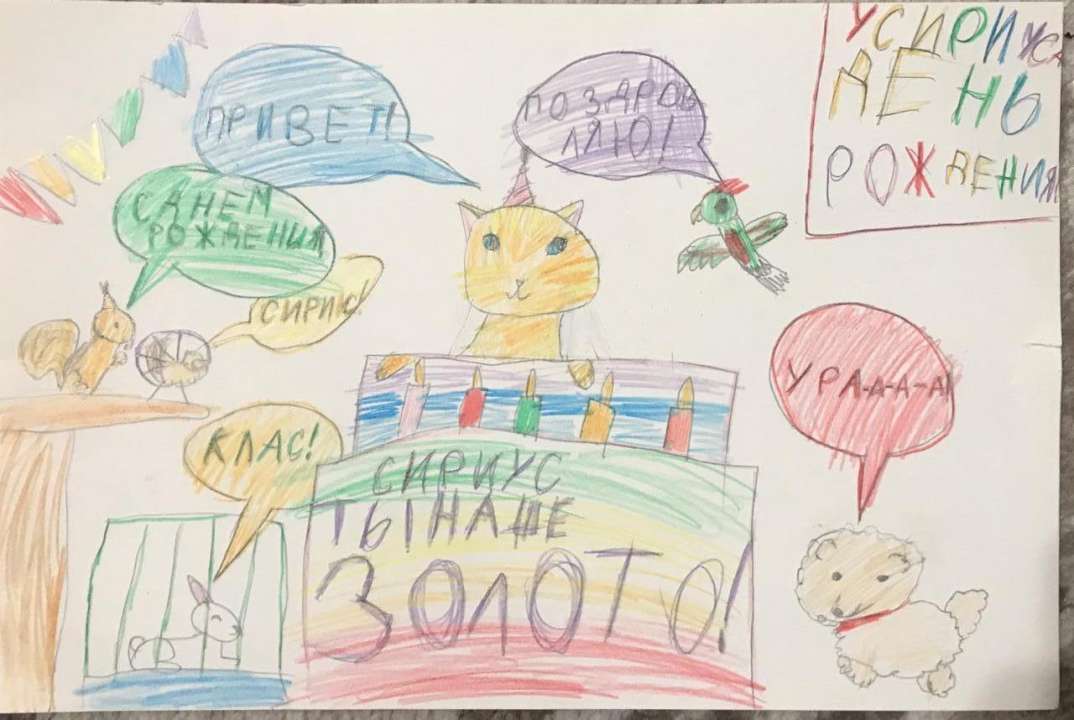 ПРИВЕТ!
ПОЗДРОВ
ЛЯЮ!
У СИРИУСА
ДЕНЬ
РОЖДЕНИЯ
С ДНЕМ
РОЖДЕНИЯ
СИРИУС!
УРА-А-А-А!
КЛАС!
СИРИУС
ТЫ НАШЕ
ЗОЛОТО!